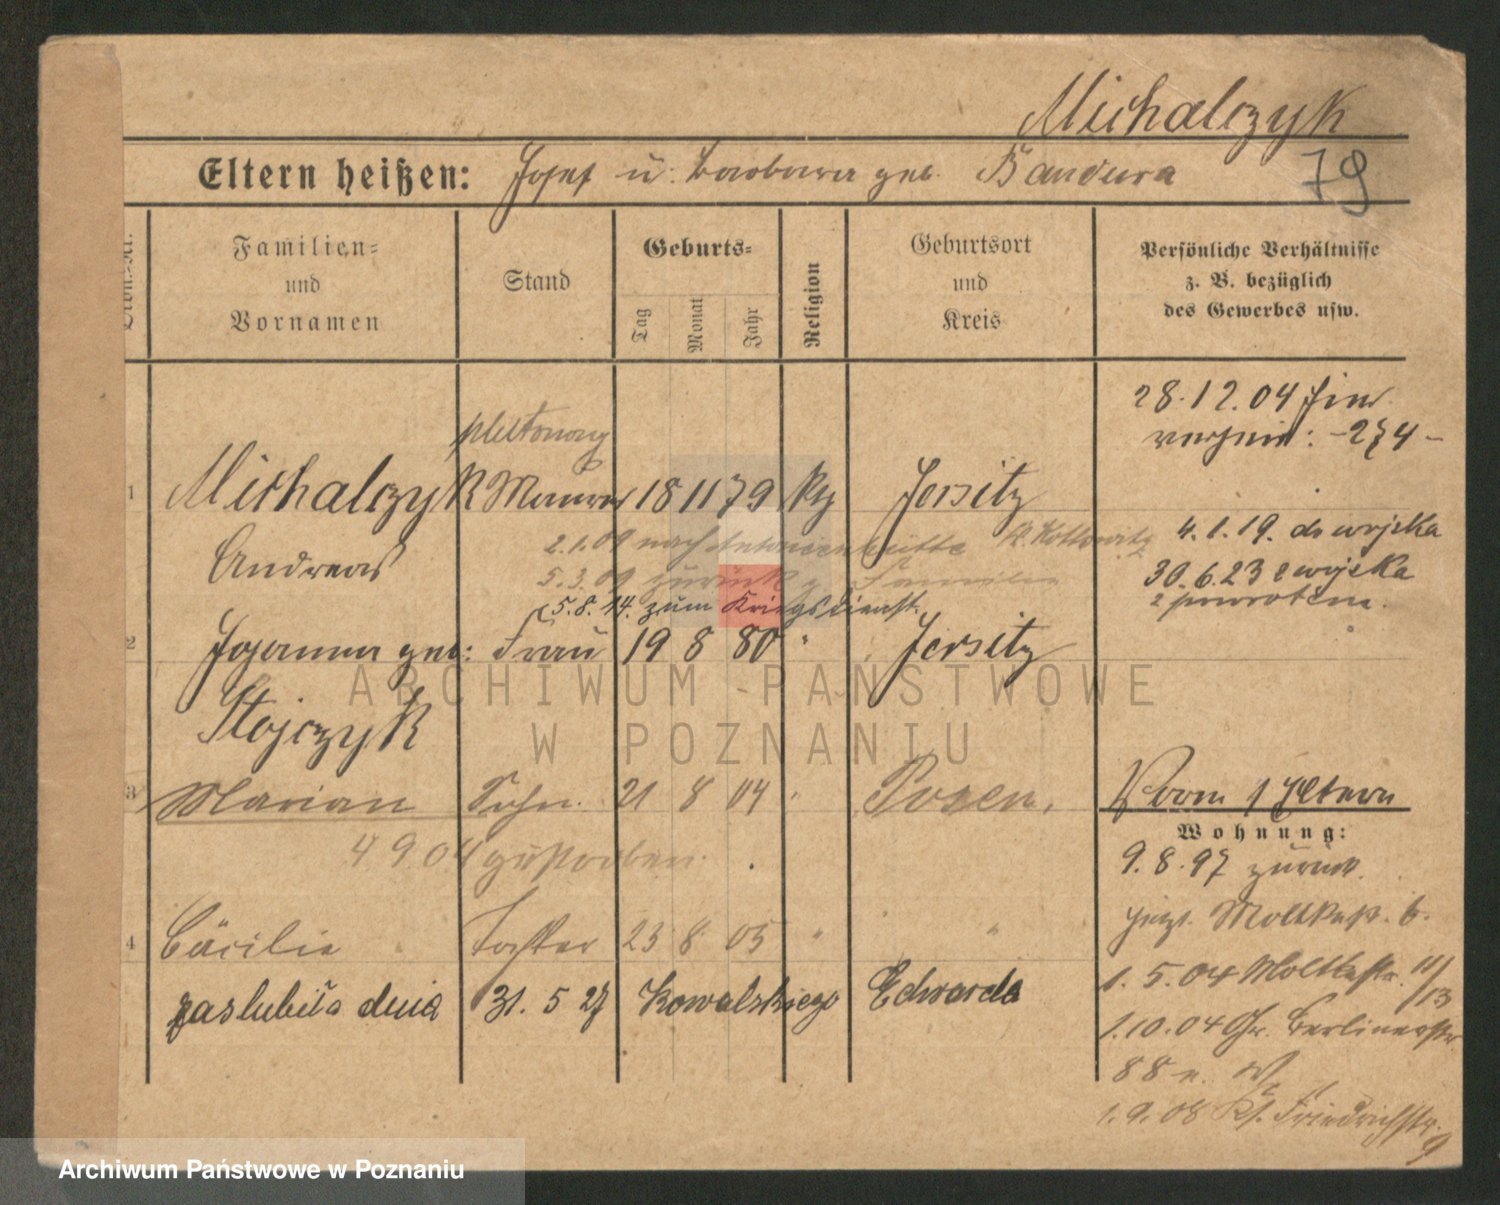 Michalczyk
79
Eltern heißen: Josef u. Barbara geb. Bandura
Familien- und Vornamen
Stand
Geburts-
Tag
Monat
Jahr
Religion
Geburtsort und Kreis
Persönliche Verhältnisse
z. B. bezüglich
des Gewerbes usw.
28.12.04
-274-
1 Michalczyk Maurer 18 11 79 Jersitz
Andreas
2.1.09 nach Antonienhütte Kr. Kattowitz
5.3.09 zurück z. Familie
5.8.14. zum Kriegsdienst.
4.1.19. do wojska
30.6.23 z wojska
z powrotem.
2 Johanna geb: Frau 19 8 80 " Jersitz
Stojczyk
3 Marian Sohn. 21 8 04 " Posen.
4 9 04 gestorben.
4 Cäcilie Tochter 23 8 05 " "
zaslubiła dnia 31. 5 27 Kowalskiego Edwarda
Wohnung:
9.8.97 zurück.
jetzt Moltkestr. 6.
1.5.04 Moltkestr. 11/13
1.10.04 Gr. Berlinerstr
88
1.9.08 Kf. Friedrichstr.
9
ARCHIWUM PAŃSTWOWE
W POZNANIU
Archiwum Państwowe w Poznaniu